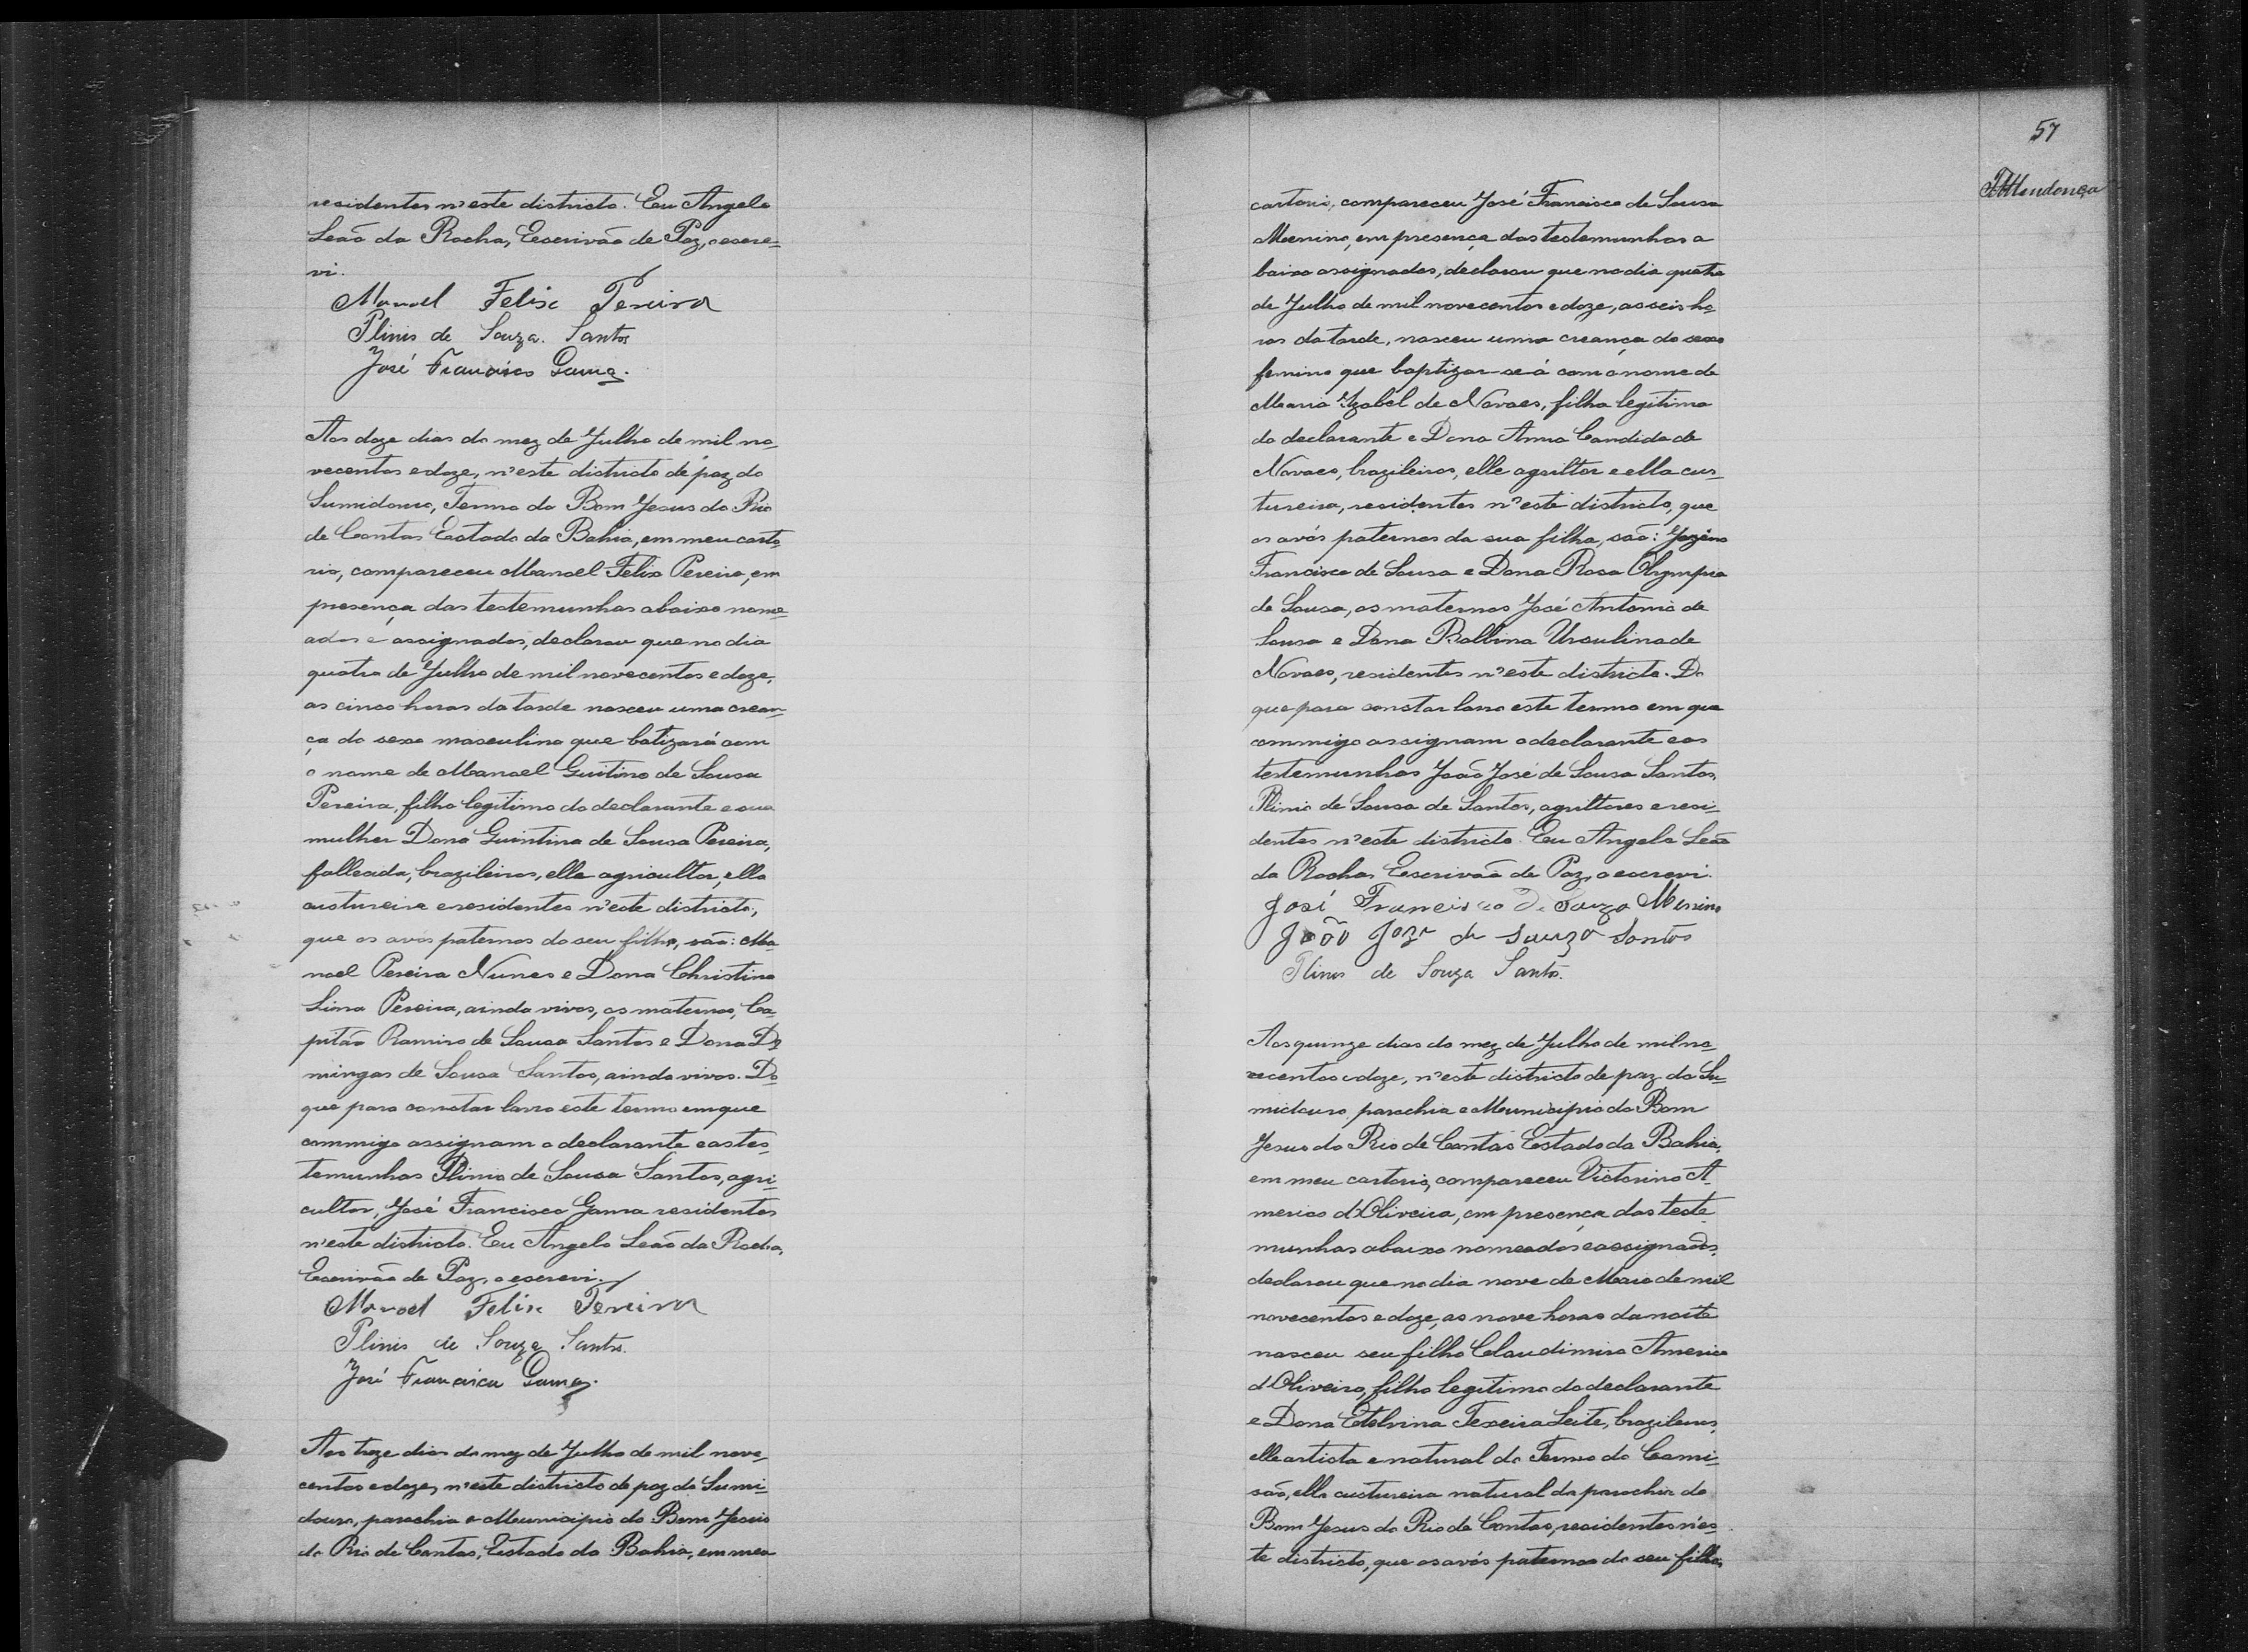 residentes n'este districto. Eu Angelo
Leão da Rocha, Escrivão de Paz, o escre-
vi.
Manoel Felix Pereira
Plinio de Souza Santos
José Francisco Gama.
Aos doze dias do mez de Julho de mil no-
vecentos e doze, n'este districto de paz do
Sumidouro, Termo do Bom Jesus do Rio
de Contas Estado da Bahia, em meu carto-
rio, compareceu Manoel Felix Pereira, em
presença das testemunhas abaixo nome-
adas e assignadas, declarou que no dia
quatro de Julho de mil novecentos e doze,
as cinco horas da tarde nasceu uma crean-
ça do sexo masculino que batizará com
o nome de Manoel Guitino de Sousa
Pereira, filho legitimo do declarante e sua
mulher Dona Guintina de Sousa Pereira,
fallecida, brazileiros, elle agricultor, ella
custureira e residentes n'este districto,
que os avós paternos do seu filho, são: Ma-
noel Pereira Nunes e Dona Christina
Lima Pereira, ainda vivos, os maternos, Ca-
pitão Ramiro de Sousa Santos e Dona Do-
mingas de Sousa Santos, ainda vivos. Do
que para constar lavro este termo em que
commigo assignam o declarante e as tes-
temunhas Plinio de Sousa Santos, agri-
cultor, José Francisco Gama residentes
n'este districto. Eu Angelo Leão da Rocha,
Escrivão de Paz, o escrevi.
Manoel Felix Pereira
Plinio de Souza Santos.
José Francisco Gama.
Aos treze dias do mez de Julho de mil nove-
centos e doze, n'este districto de paz do Sumi-
douro, parochia e Municipio do Bom Jesus
do Rio de Contas, Estado da Bahia, em meu
57
cartorio, compareceu José Francisco de Sousa
Menino, em presença das testemunhas a
baixo assignadas, declarou que no dia quatro
de Julho de mil novecentos e doze, as seis ho-
ras da tarde, nasceu uma creança do sexo
femino que baptizar-se-á com o nome de
Maria Izabel de Novaes, filha legitima
do declarante e Dona Anna Candida de
Novaes, brazileiros, elle agriltor e ella cus-
tureira, residentes n'este districto, que
os avós paternos da sua filha, são:
Francisco de Sousa e Dona Rosa Olympia
de Sousa, os maternos José Antonio de
Sousa e Dona Ursulina de
Novaes, residentes n'este districto. Do
que para constar lavro este termo em que
commigo assignam o declarante e as
testemunhas João José de Sousa Santos,
Plinio de Sousa de Santos, agriltores e resi-
dentes n'este districto. Eu Angelo Leão
da Rocha, Escrivão de Paz, o escrevi.
José Francisco de Souza Menino
João Joze de Souza Santos
Plinio de Souza Santos.
Aos quinze dias do mez de Julho de mil no-
vecentos e doze, n'este districto de paz do Su-
midouro, parochia e Municipio do Bom
Jesus do Rio de Contas Estado da Bahia,
em meu cartorio, compareceu Victorino A-
merico d'Oliveira, em presença das teste-
munhas abaixo nomeadas e assignadas,
declarou que no dia nove de Maio de mil
novecentos e doze, as nove horas da noite
nasceu seu filho Claudimiro Americo
d'Oliveira, filho legitimo do declarante
e Dona Etelvina Texeira Leite, brazileiros,
elle artista e natural do Termo do Cami-
são, ella custureira natural da parochia do
Bom Jesus do Rio de Contas, residentes n'es-
te districto, que os avós paternos do seu filho,